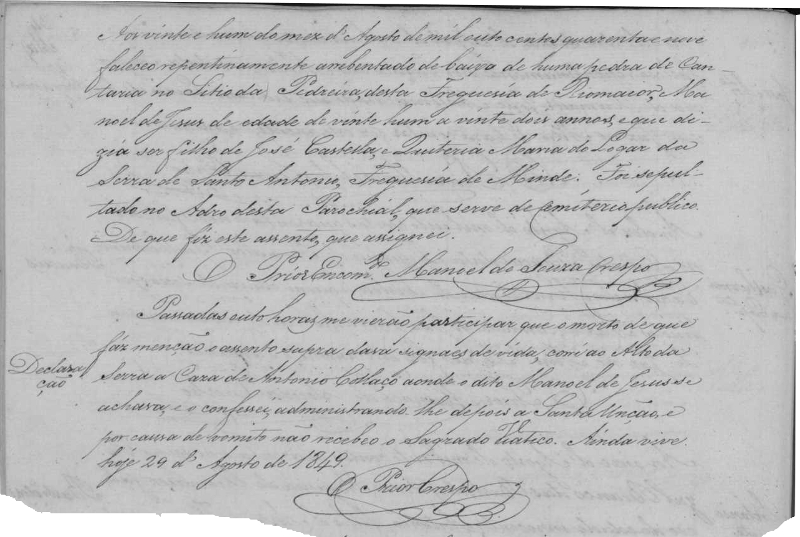 Aos vinte e hum do mez d'Agosto de mil outo centos quarenta e nove
faleceo repentinamente arrebentado de baixo de huma pedra de Can-
taria no Sitio da Pedreira, desta Freguesia de Riomaior, Ma-
noel de Jesus de edade de vinte hum a vinte dois annos, e que di-
zia ser filho de José Castella, e Quiteria Maria do Logar da
Serra de Santo Antonio, Freguesia de Minde. Foi sepul-
tado no Adro desta Parochial, que serve de Cemiterio publico.
De que fiz este assento, que assignei.
O Prior Encom.do Manoel de Souza Crespo
Passadas outo horas, me vierão participar que o morto de que
Declara
ção
fáz menção o assento supra dava signaes de vida, corri ao Alto da
Serra a Caza de Antonio Collaço aonde o dito Manoel de Jesus se
achava, e o confessei, administrando-lhe depois a Santa Unção, e
por causa de vomito não recebeo o Sagrado Viatico. Ainda vive
hoje 29 d'Agosto de 1849.
O Prior Crespo